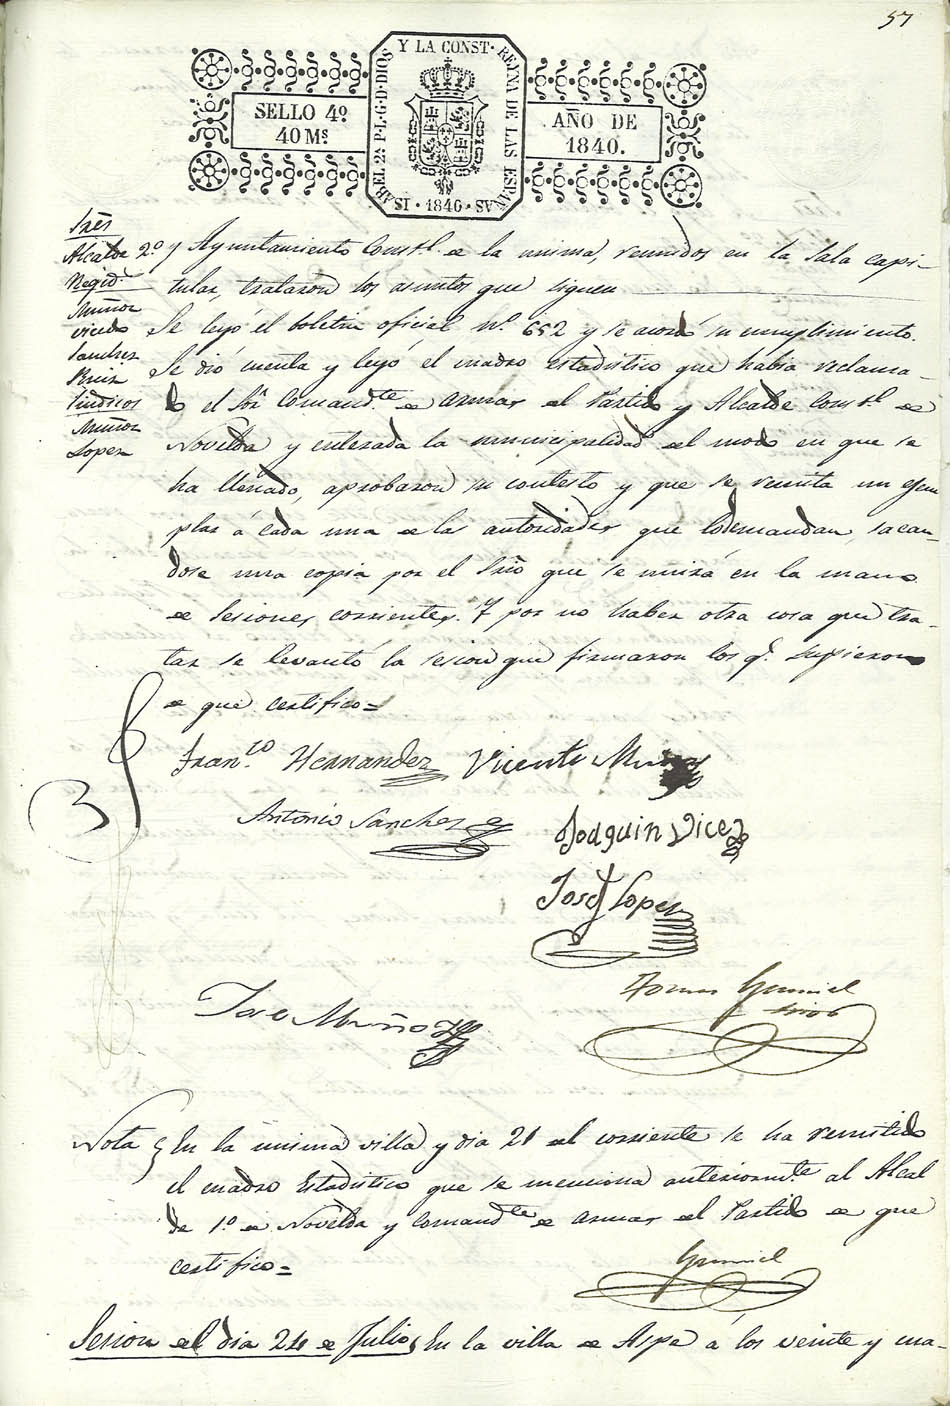 57
SELLO 4º
40 Mˢ
ISABEL 2ª P.L.G.D.DIOS Y LA CONST. REYNA DE LAS ESPAÑAS
1840
AÑO DE
1840.
Sres
Alcalde 2.º
Regid.s
Muñoz
Vicedo
Sanchez
Ruiz
Sindicos
Muñoz
Lopez
y Ayuntamiento Const.l de la misma, reunidos en la Sala capi-
tular, trataron los asuntos que siguen
Se leyó el boletin oficial n.º 652 y se acordó su cumplimiento.
Se dió cuenta y leyo el cuadro Estadistico que habia reclama-
do el Sōr Comand.te de armas del Partido y Alcalde Const.l de
Novelda y enterada la municipalidad del modo en que se
ha llenado, aprobaron su contesto y que se remita un ejem
plar á cada una de las autoridades que lo demandan, sacan-
dose una copia por el Srio que se unirá en la mano
de Sesiones corrientes. Y por no haber otra cosa que tra-
tar se levantó la sesion que firmaron los q.e supieron
de que certifico=
Fran.co Hernandez Vicente
Antonio Sanchez
Joaquin Vicedo
José Lopez
Jose Muñoz
Tomas
srio
Nota En la misma villa y dia 21 del corriente se ha remitido
el cuadro Estadistico que se menciona anteriorm.te al Alcal
de 1.º de Novelda y Comand.te de armas del Partido de que
certifico=
Sesion del dia 24 de Julio En la villa de Aspe á los veinte y cua-